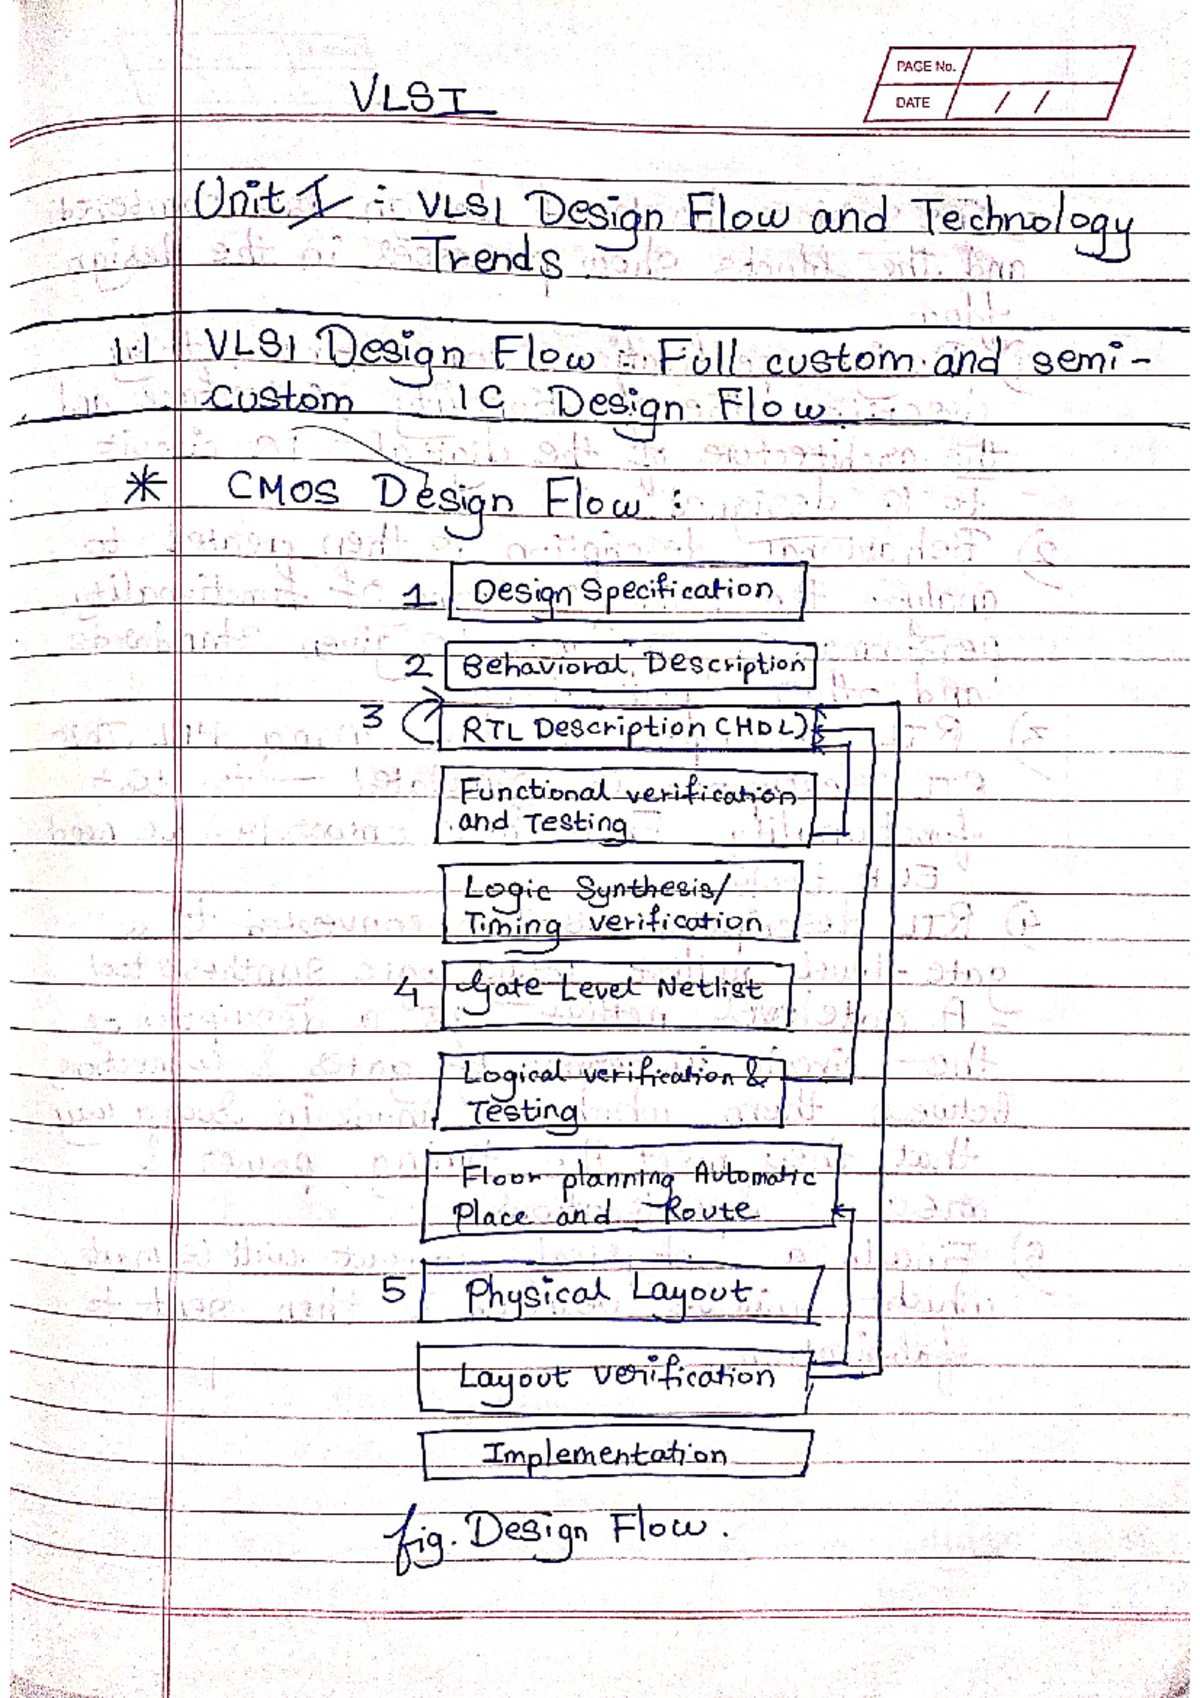 PAGE No.
DATE / /
VLSI
Unit I : VLSI Design Flow and Technology
Trends
1.1 VLSI Design Flow : Full custom and semi-
custom IC Design Flow
* CMOS Design Flow :
1 Design Specification
2 Behavioral Description
3 RTL Description (HDL)
Functional verification
and Testing
Logic Synthesis/
Timing verification
4 Gate Level Netlist
Logical verification &
Testing
Floor planning Automatic
Place and Route
5 Physical Layout
Layout verification
Implementation
fig. Design Flow.